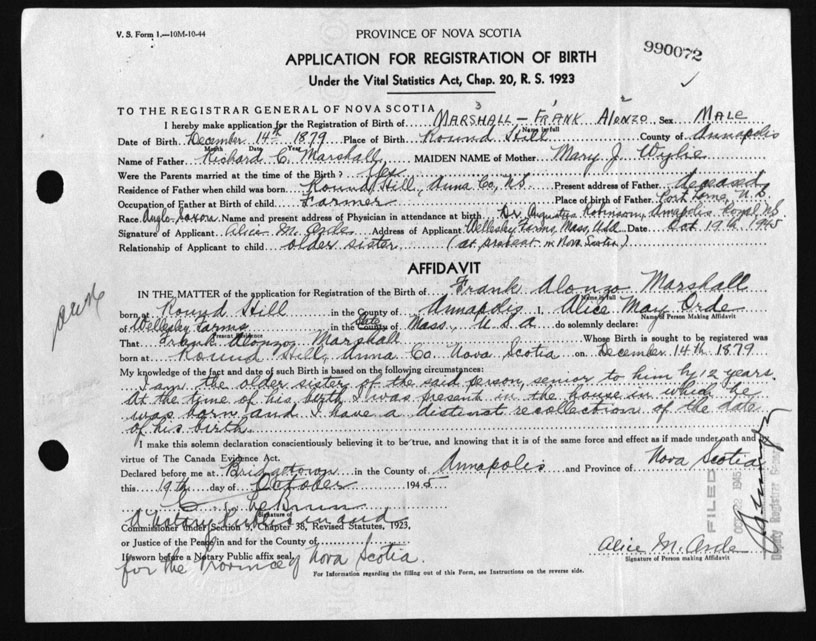 V. S. Form 1.—10M-10-44
PROVINCE OF NOVA SCOTIA
990072
APPLICATION FOR REGISTRATION OF BIRTH
Under the Vital Statistics Act, Chap. 20, R. S. 1923
TO THE REGISTRAR GENERAL OF NOVA SCOTIA
I hereby make application for the Registration of Birth of MARSHALL - FRANK Alonzo Sex MALE
Name in full
Date of Birth December 14th 1879 Place of Birth Round Hill County of Annapolis
Month Date Year
Name of Father Richard C. Marshall MAIDEN NAME of Mother Mary J. Wylie
Were the Parents married at the time of the Birth? Yes
Residence of Father when child was born Round Hill, Anna Co, N.S. Present address of Father deceased
Occupation of Father at Birth of child Farmer Place of birth of Father Port Lorne, N.S.
Race Anglo-Saxon Name and present address of Physician in attendance at birth Dr. Augustus Robinson, Annapolis Royal, N.S.
Signature of Applicant Alice M. Orde Address of Applicant Wellesley Farms, Mass, USA Date Oct 19th 1945
Relationship of Applicant to child older sister (at present in Nova Scotia)
AFFIDAVIT
IN THE MATTER of the application for Registration of the Birth of Frank Alonzo Marshall
Name in full
born at Round Hill in the County of Annapolis I, Alice May Orde
Name of Person Making Affidavit
of Wellesley Farms in the County State of Mass., U.S.A do solemnly declare:
Present Residence
That Frank Alonzo Marshall Whose Birth is sought to be registered was
born at Round Hill, Anna Co Nova Scotia on December 14th 1879
My knowledge of the fact and date of such Birth is based on the following circumstances:
I am the older sister of the said person, senior to him by 12 years.
At the time of his birth I was present in the house in which he
was born and I have a distinct recollection of the date
of his birth.
I make this solemn declaration conscientiously believing it to be true, and knowing that it is of the same force and effect as if made under oath and
virtue of The Canada Evidence Act.
Declared before me at Bridgetown in the County of Annapolis and Province of Nova Scotia
this 19th day of October 1945
LeBrun
Signature of
A Notary Public in and
Commissioner under Section 5, Chapter 38, Revised Statutes, 1923,
or Justice of the Peace in and for the County of
If sworn before a Notary Public affix seal.
for the Province of Nova Scotia.
Alice M. Orde
Signature of Person making Affidavit
For Information regarding the filling out of this Form, see Instructions on the reverse side.
FILED
1945
Deputy Registrar General